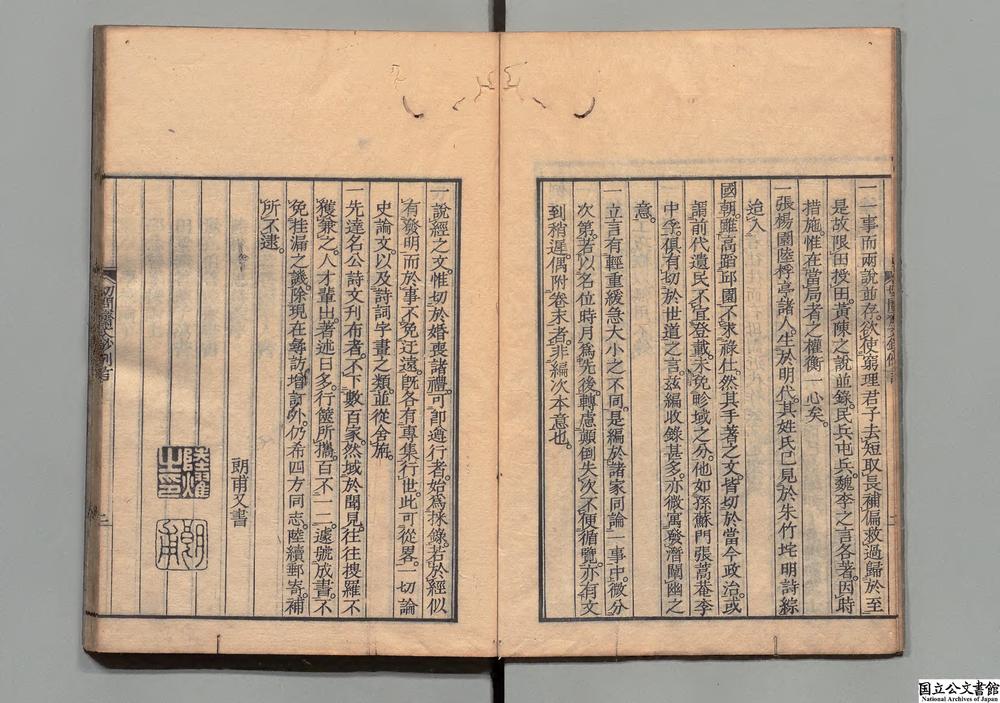 一一事而兩說並存欲使窮理君子去短取長補偏救過歸於至
是故限田授田黃陳之說並錄民兵屯兵魏李之言各著因時
措施惟在當局者之權衡一心矣
一張楊園陸桴亭諸人生於明代其姓氏已見於朱竹垞明詩綜
迨入
國朝雖高蹈邱園不求祿仕然其手著之文皆切於當今政治或
謂前代遺民不宜登載未免畛域之分他如孫蘇門張蒿菴李
中孚俱有切於世道之言茲編收錄甚多亦微寓發潛闡幽之
意
一立言有輕重緩急大小之不同是編於諸家同論一事中微分
次第若以名位時月爲先後轉慮顚倒失次不便循覽亦有文
到稍遲偶附卷末者非編次本意也
一說經之文惟切於婚喪諸禮可卽遵行者始爲採錄若於經似
有發明而於事不免迂遠旣各有專集行世此可從畧一切論
史論文以及詩詞字畫之類並從舍旃
一先達名公詩文刊布者不下數百家然域於聞見往往搜羅不
獲兼之人才輩出著述日多行篋所攜百不一二遽號成書不
免挂漏之譏除現在尋訪增訂外仍希四方同志陸續郵寄補
所不逮
朗甫又書
陸燿之印
朗甫
切問齋文鈔例言
三
国立公文書館
National Archives of Japan